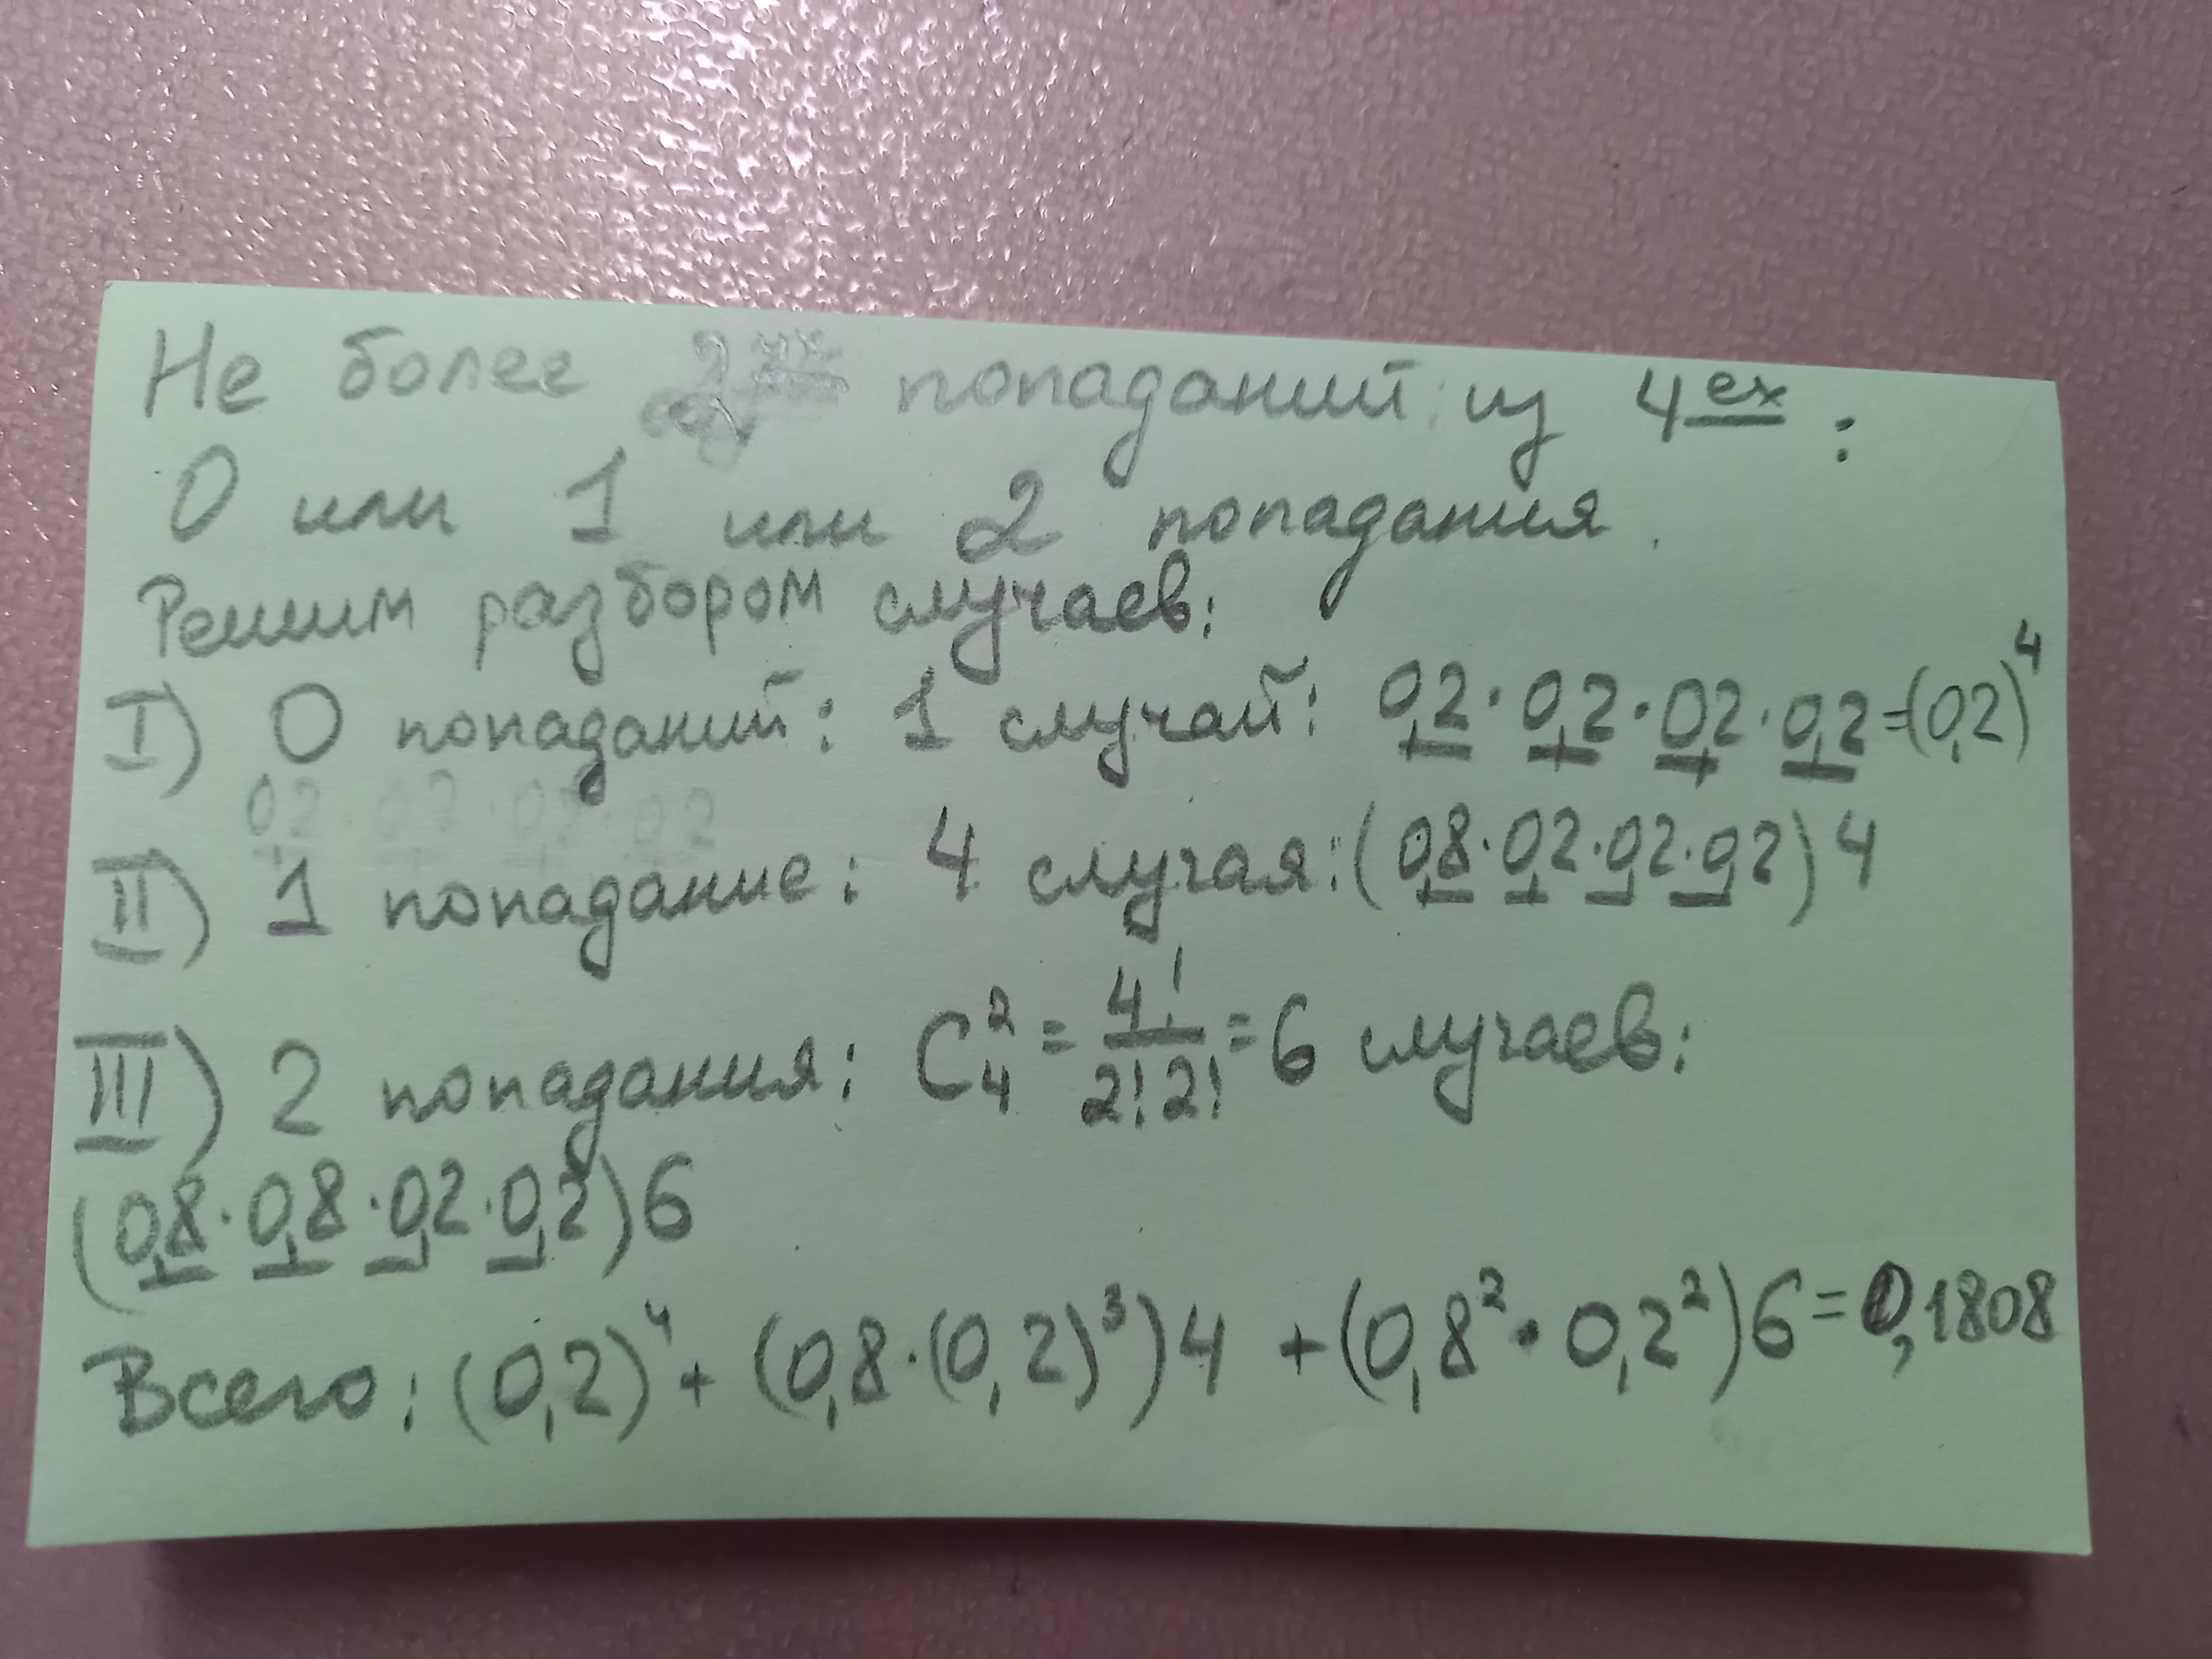 Не более 2ух попаданий из 4ех:
0 или 1 или 2 попадания.
Решим разбором случаев:
I) 0 попаданий: 1 случай: 0,2·0,2·0,2·0,2=(0,2)⁴
0,2·0,2·0,2·0,2
II) 1 попадание: 4 случая:(0,8·0,2·0,2·0,2)4
III) 2 попадания: C₄²=4!/2!2!=6 случаев:
(0,8·0,8·0,2·0,2)6
Всего: (0,2)⁴+(0,8·(0,2)³)4+(0,8²·0,2²)6=0,1808